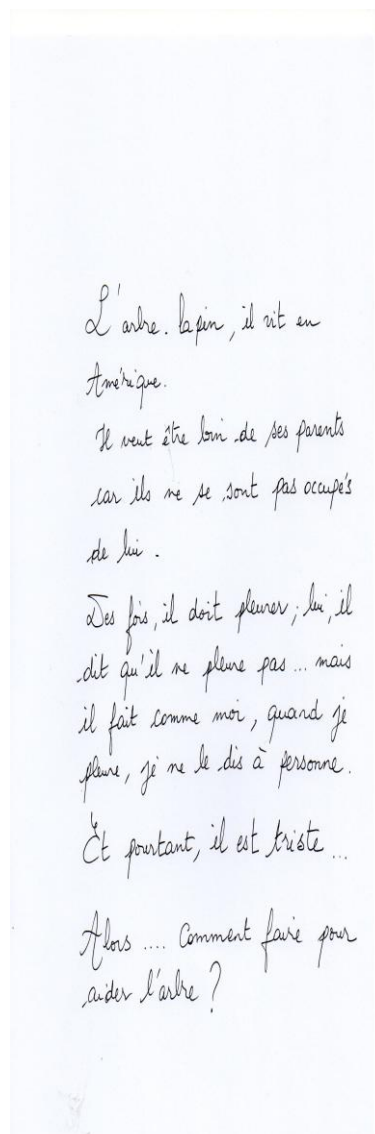 L'arbre. lapin, il vit en
Amérique.
Il veut être loin de ses parents
car ils ne se sont pas occupés
de lui.
Des fois, il doit pleurer; lui, il
dit qu'il ne pleure pas... mais
il fait comme moi, quand je
pleure, je ne le dis à personne.
Et pourtant, il est triste...
Alors.... Comment faire pour
aider l'arbre?